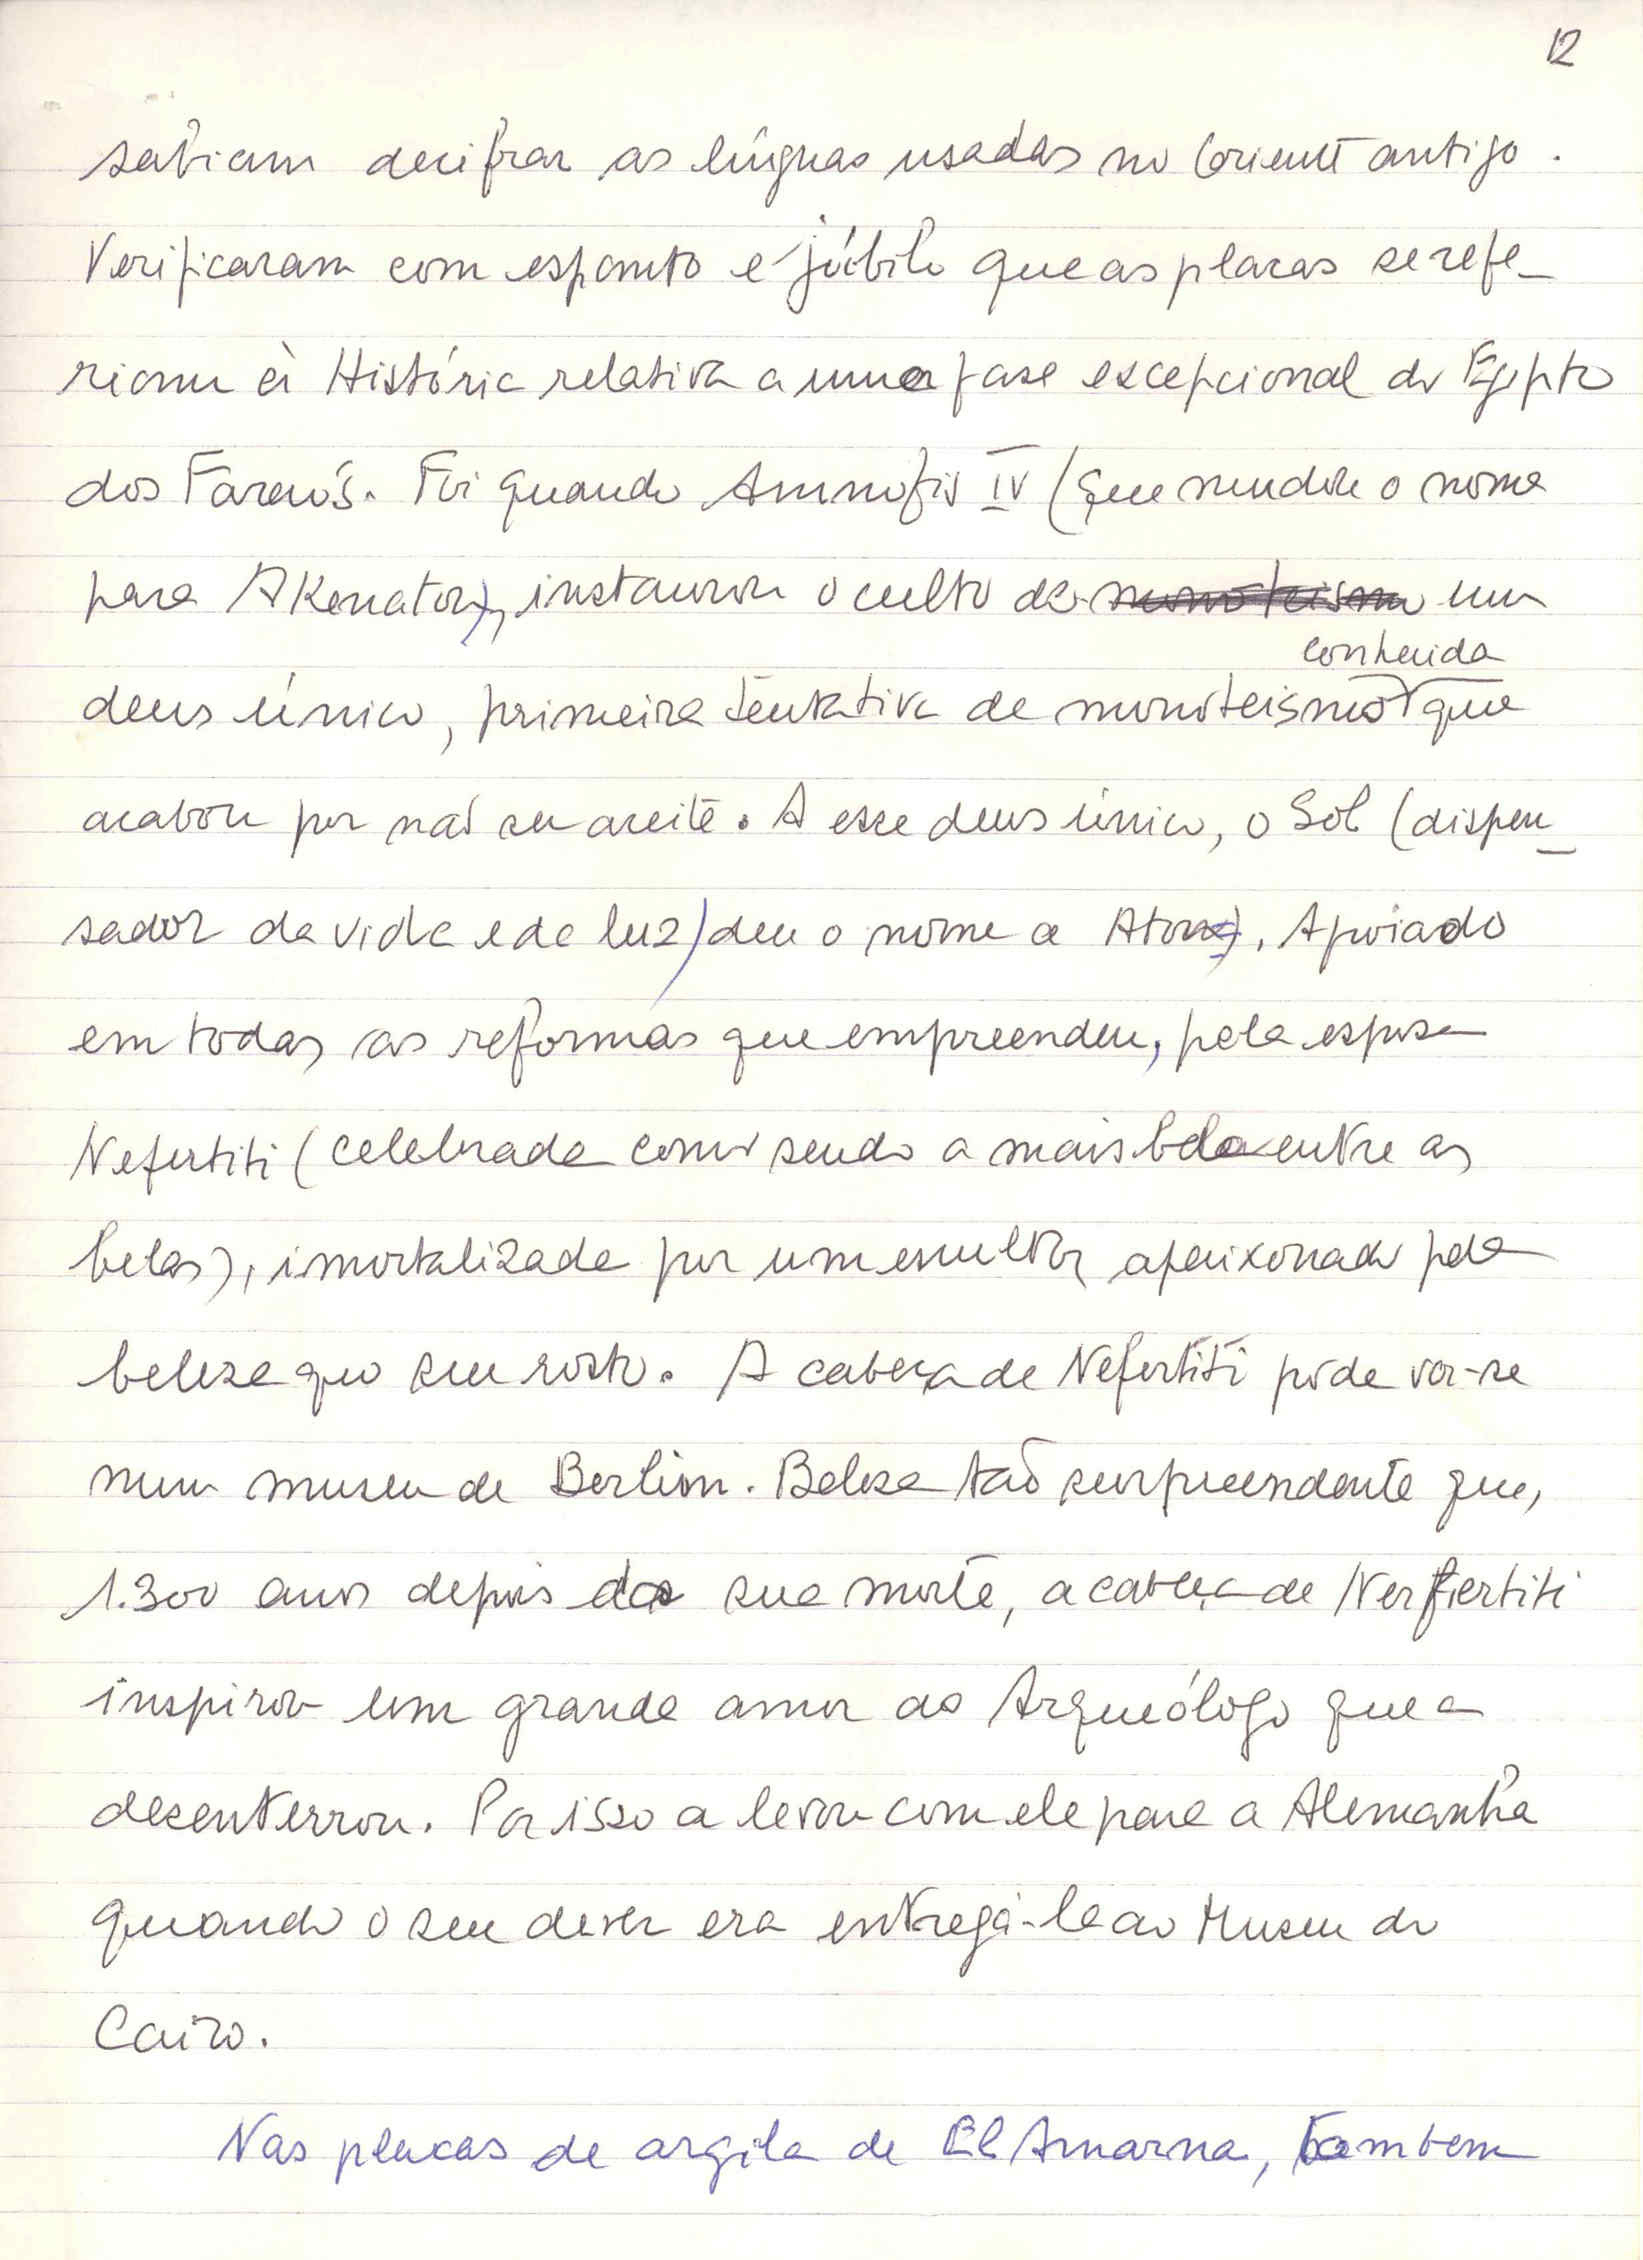 12
sabiam decifrar as línguas usadas no Oriente antigo.
Verificaram com espanto e júbilo que as placas se refe-
riam à História relativa a uma fase excepcional do Egipto
dos Faraós. Foi quando Amnofis IV (que mudou o nome
para Akenaton), instaurou o culto de monoteismo um
conhecida
deus único, primeira tentativa de monoteismo que
acabou por não ser aceite. A esse deus único, o Sol (dispen-
sador da vida e da luz) deu o nome a Aton. Apoiado
em todas as reformas que empreendeu, pela esposa
Nefertiti (celebrada como sendo a mais bela entre as
belas), imortalizada por um escultor apaixonado pela
beleza quo seu rosto. A cabeça de Nefertiti pode ver-se
num museu de Berlim. Beleza tão surpreendente que,
1.300 anos depois da sua morte, a cabeça de Nerfertiti
inspirou um grande amor ao Arqueólogo que a
desenterrou. Por isso a levou com ele para a Alemanha
quando o seu dever era entregá-la ao Museu do
Cairo.
Nas placas de argila de El Amarna, tambem